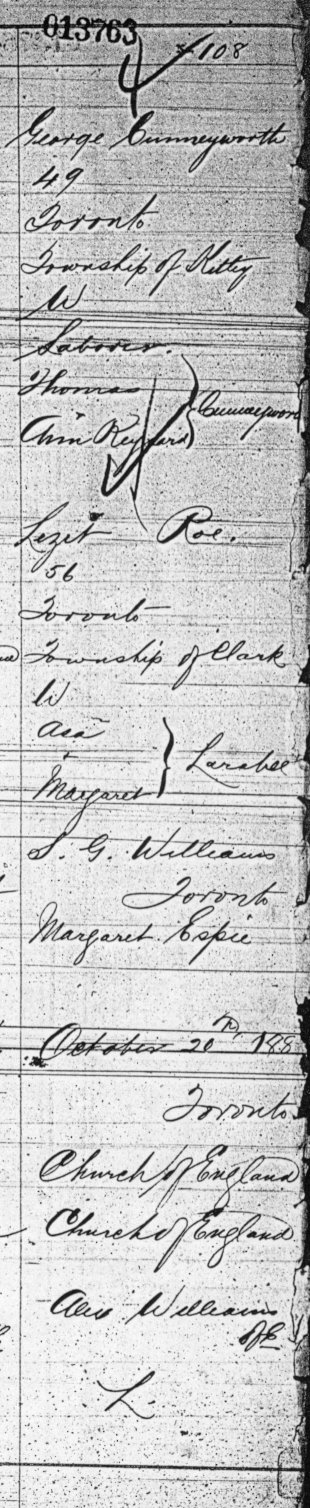 013763
108
George Cunneyworth
49
Toronto
Township of Kitley
W
Laborer.
Thomas
Ann Reynard } Cunneyworth
Lezit Roe.
56
Toronto
Township of Clark
W
Asa
+
Margaret } Larabee
S. G. Williams
Toronto
Margaret Espie
October 20th, 188
Toronto
Church of England
Church of England
Alex Williams
L.